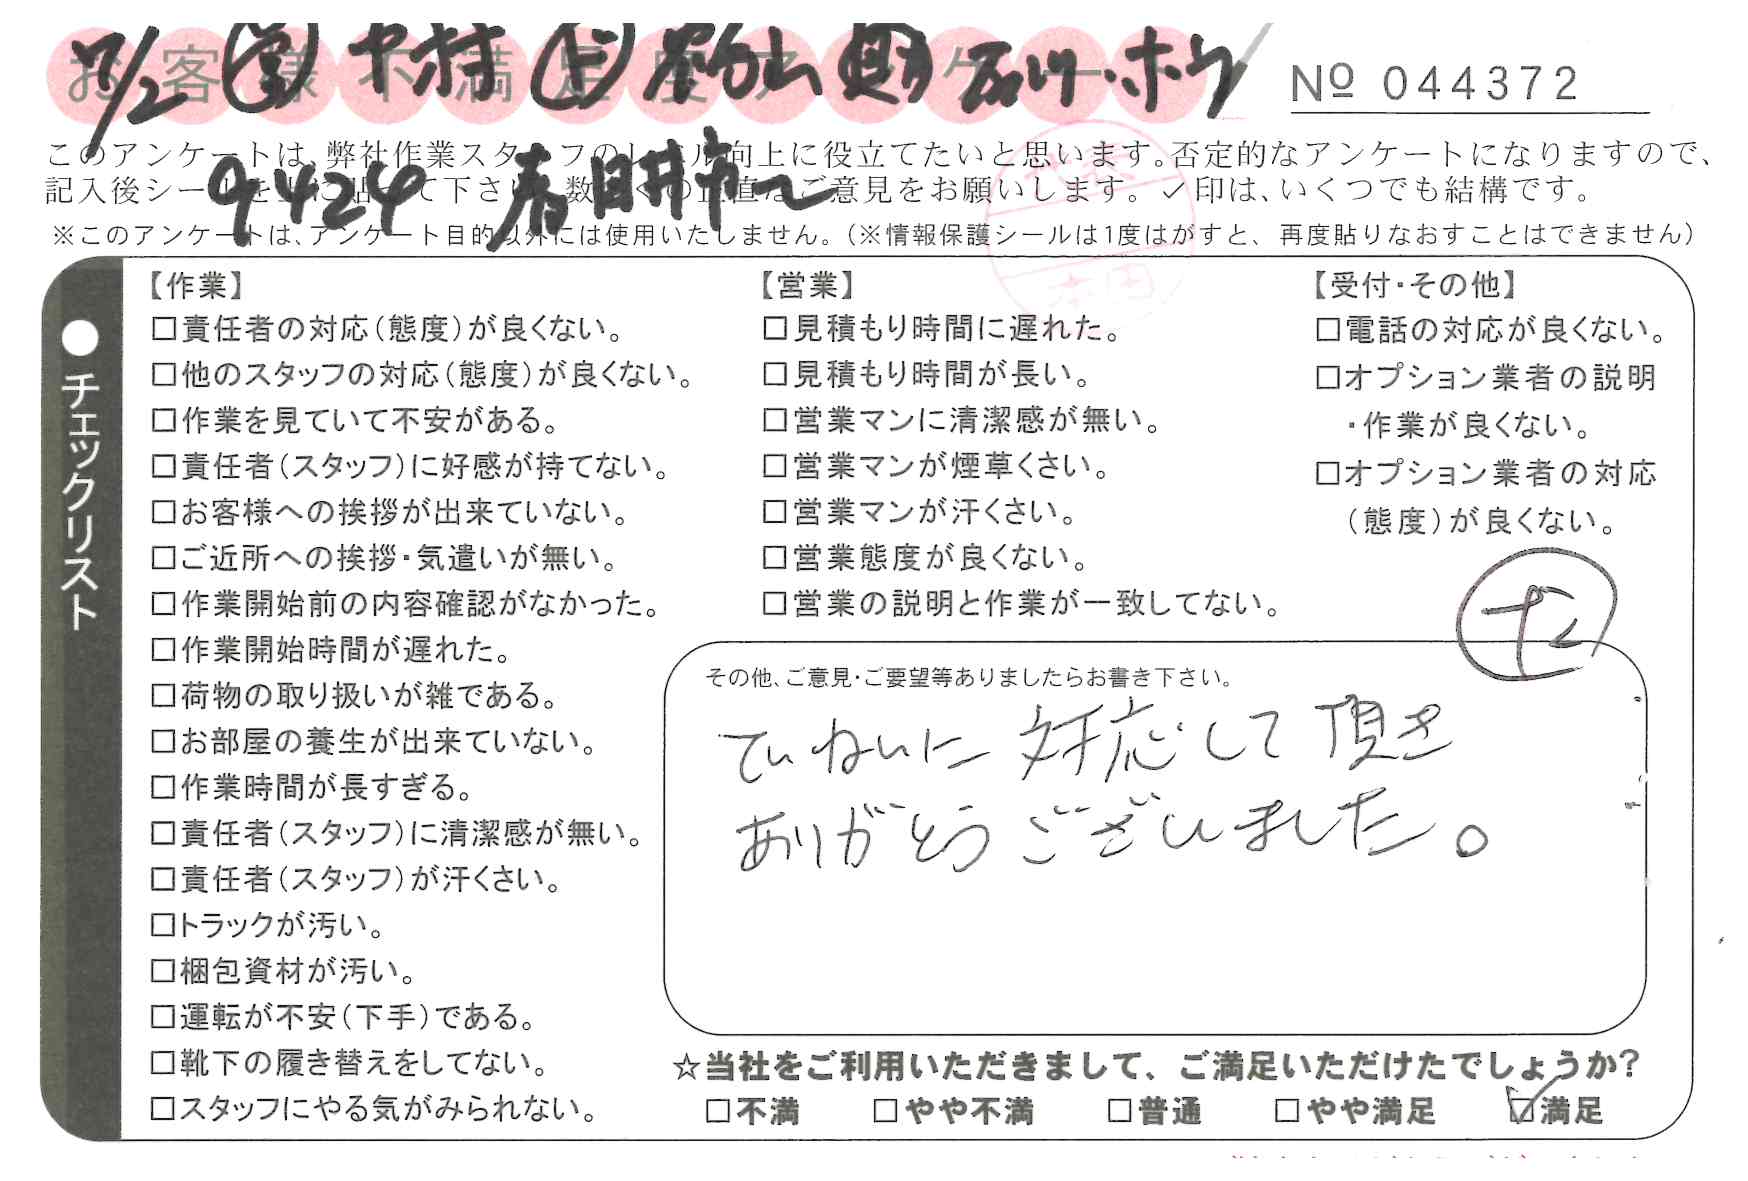 お客様不満足度アンケート
7/2 営 中村 上 助 石川・ホウ
Nº 044372
9424 春日井市〜
このアンケートは、弊社作業スタッフのレベル向上に役立てたいと思います。否定的なアンケートになりますので、
記入後シールを上に貼って下さい。数多くの正直なご意見をお願いします。✓印は、いくつでも結構です。
※このアンケートは、アンケート目的以外には使用いたしません。(※情報保護シールは1度はがすと、再度貼りなおすことはできません)
●チェックリスト
【作業】
□責任者の対応(態度)が良くない。
□他のスタッフの対応(態度)が良くない。
□作業を見ていて不安がある。
□責任者(スタッフ)に好感が持てない。
□お客様への挨拶が出来ていない。
□ご近所への挨拶・気遣いが無い。
□作業開始前の内容確認がなかった。
□作業開始時間が遅れた。
□荷物の取り扱いが雑である。
□お部屋の養生が出来ていない。
□作業時間が長すぎる。
□責任者(スタッフ)に清潔感が無い。
□責任者(スタッフ)が汗くさい。
□トラックが汚い。
□梱包資材が汚い。
□運転が不安(下手)である。
□靴下の履き替えをしてない。
□スタッフにやる気がみられない。
【営業】
□見積もり時間に遅れた。
□見積もり時間が長い。
□営業マンに清潔感が無い。
□営業マンが煙草くさい。
□営業マンが汗くさい。
□営業態度が良くない。
□営業の説明と作業が一致してない。
【受付・その他】
□電話の対応が良くない。
□オプション業者の説明
・作業が良くない。
□オプション業者の対応
(態度)が良くない。
その他、ご意見・ご要望等ありましたらお書き下さい。
ていねいに対応して頂き
ありがとうございました。
☆当社をご利用いただきまして、ご満足いただけたでしょうか?
□不満 □やや不満 □普通 □やや満足 ☑満足